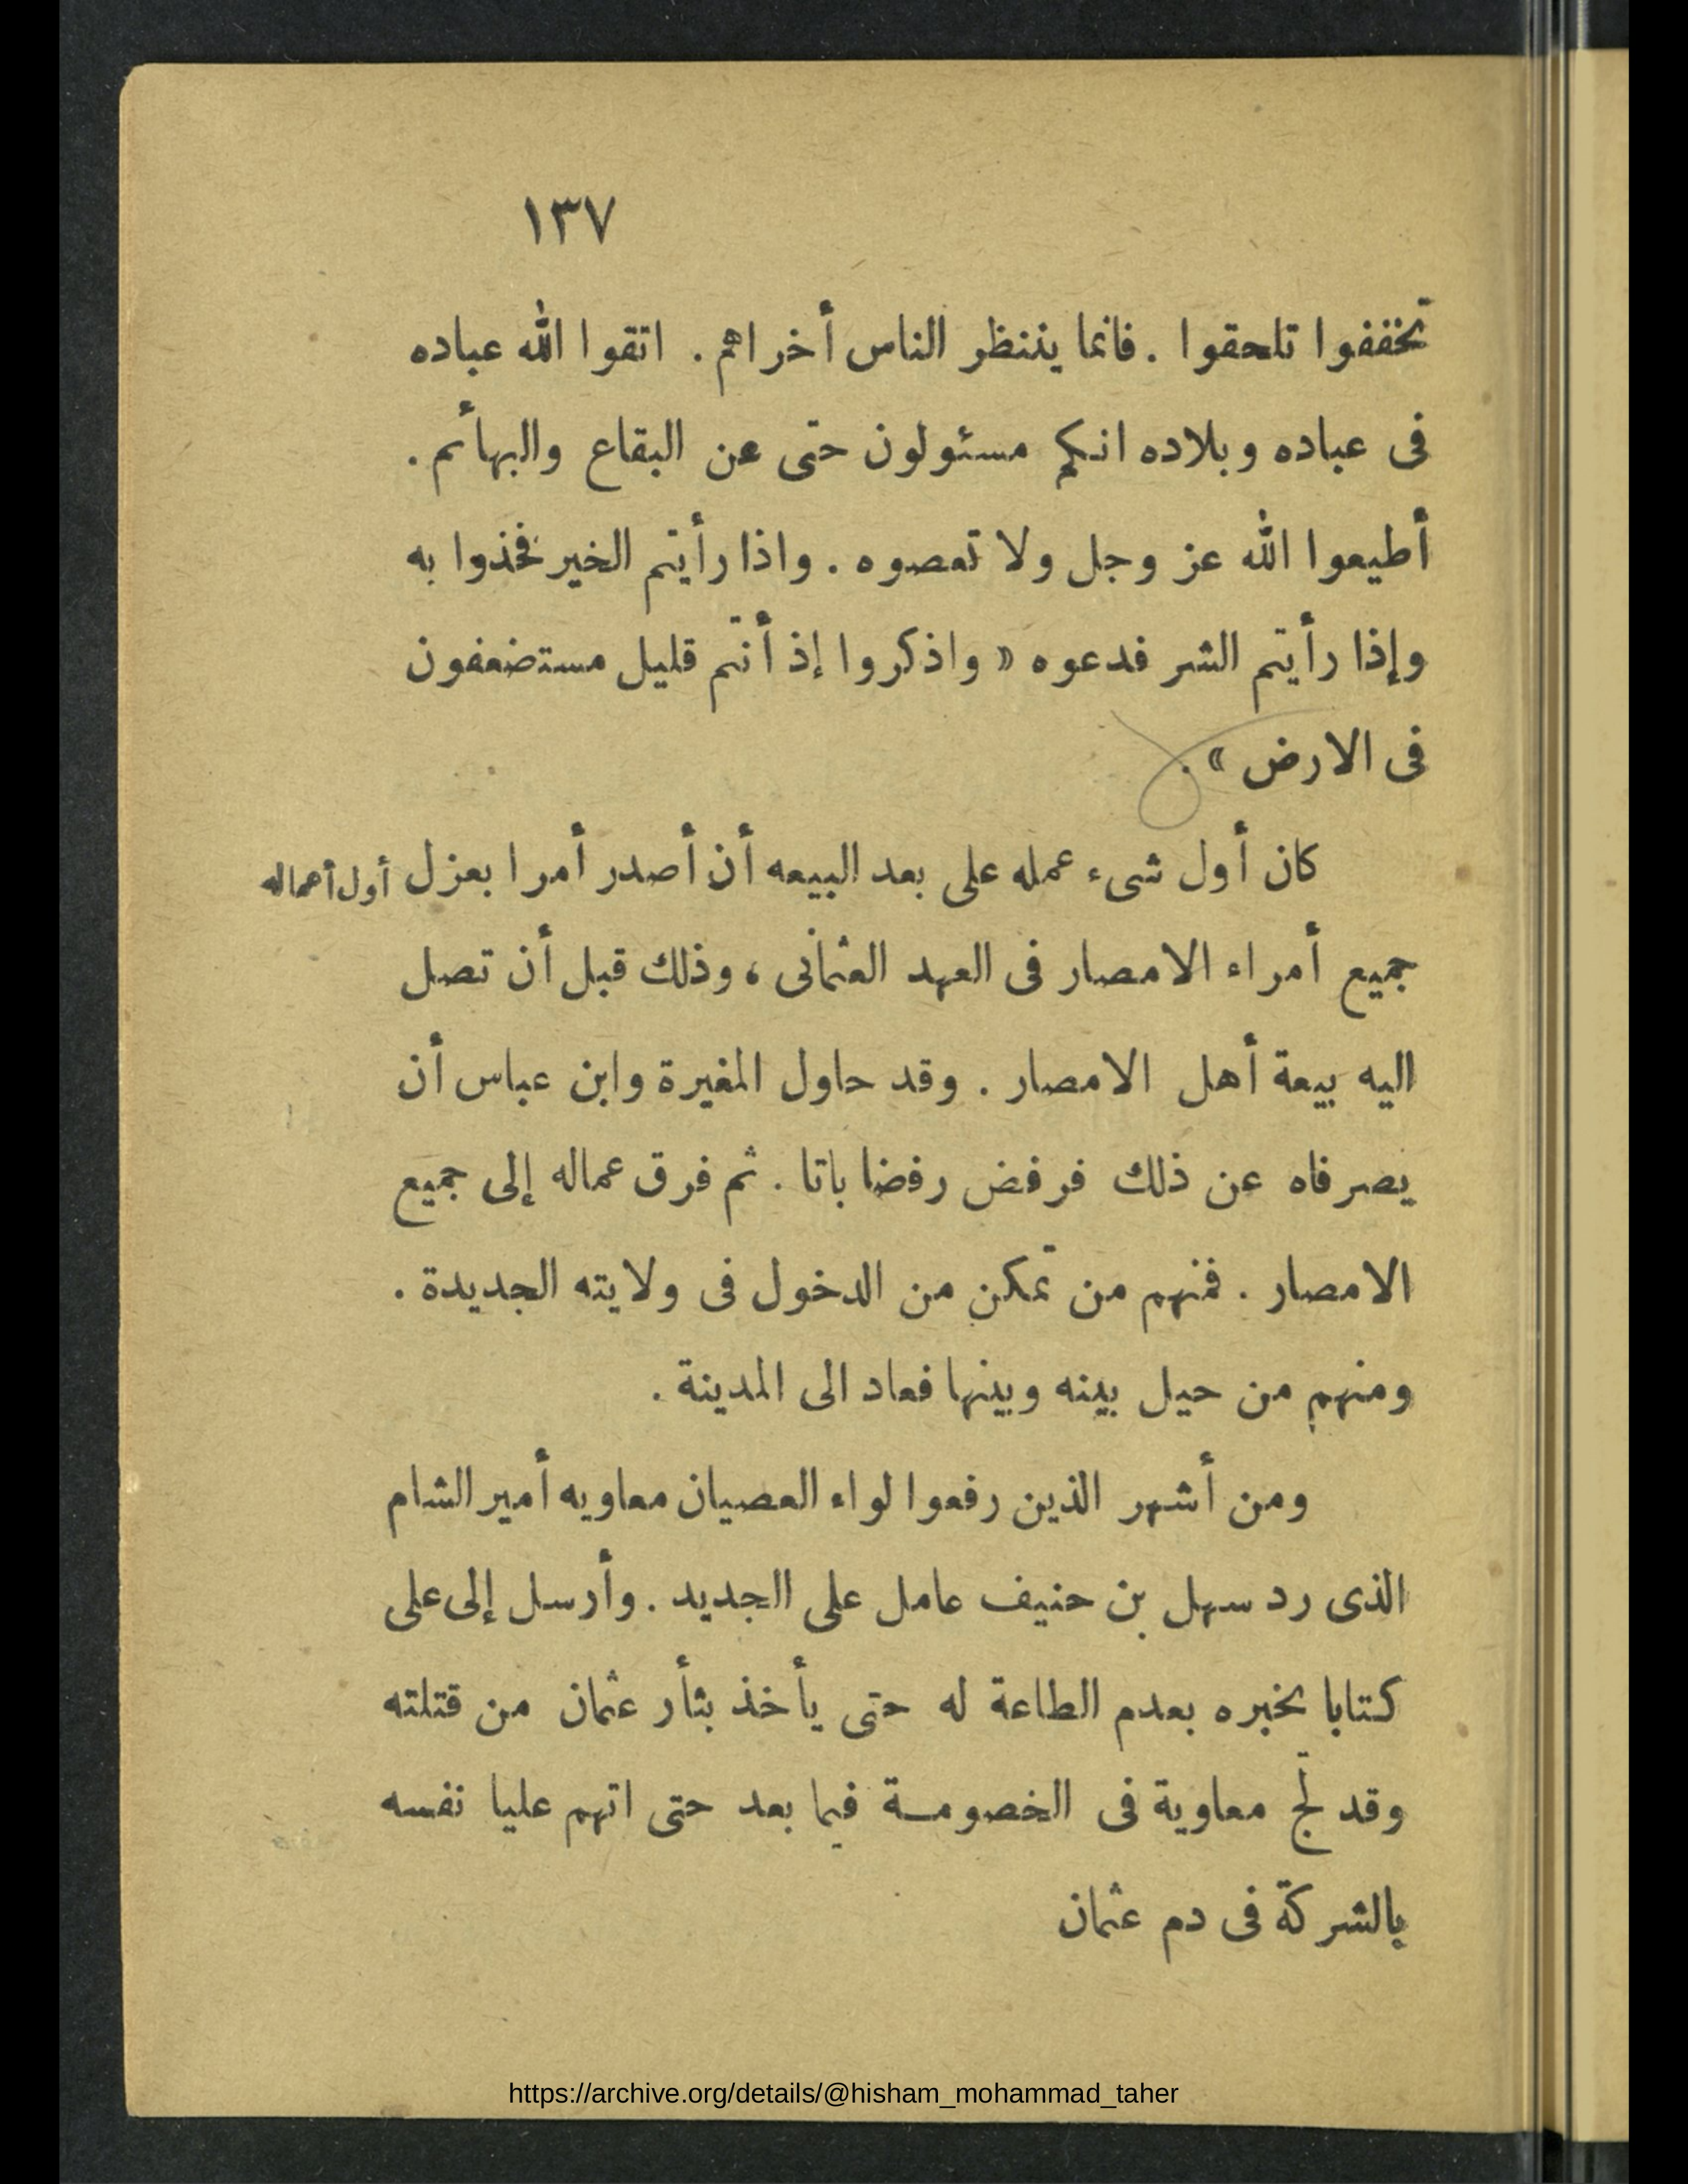 ١٣٧
تخففوا تلحقوا . فانما ينتظر الناس أخراهم . اتقوا الله عباده
فى عباده وبلاده انكم مسئولون حتى عن البقاع والبهائم .
أطيعوا الله عز وجل ولا تعصوه . واذا رأيتم الخير فخذوا به
وإذا رأيتم الشر فدعوه « واذكروا إذ أنتم قليل مستضعفون
فى الارض » .
كان أول شىء عمله على بعد البيعه أن أصدر أمرا بعزل
أول أعماله
جميع أمراء الامصار فى العهد العثمانى ، وذلك قبل أن تصل
اليه بيعة أهل الامصار . وقد حاول المغيرة وابن عباس أن
يصرفاه عن ذلك فرفض رفضا باتا . ثم فرق عماله إلى جميع
الامصار . فمنهم من تمكن من الدخول فى ولايته الجديدة .
ومنهم من حيل بينه وبينها فعاد الى المدينة .
ومن أشهر الذين رفعوا لواء العصيان معاويه أمير الشام
الذى رد سهل بن حنيف عامل على الجديد . وأرسل إلى على
كتابا يخبره بعدم الطاعة له حتى يأخذ بثأر عثمان من قتلته
وقد لج معاوية فى الخصومة فيما بعد حتى اتهم عليا نفسه
بالشركة فى دم عثمان
https://archive.org/details/@hisham_mohammad_taher